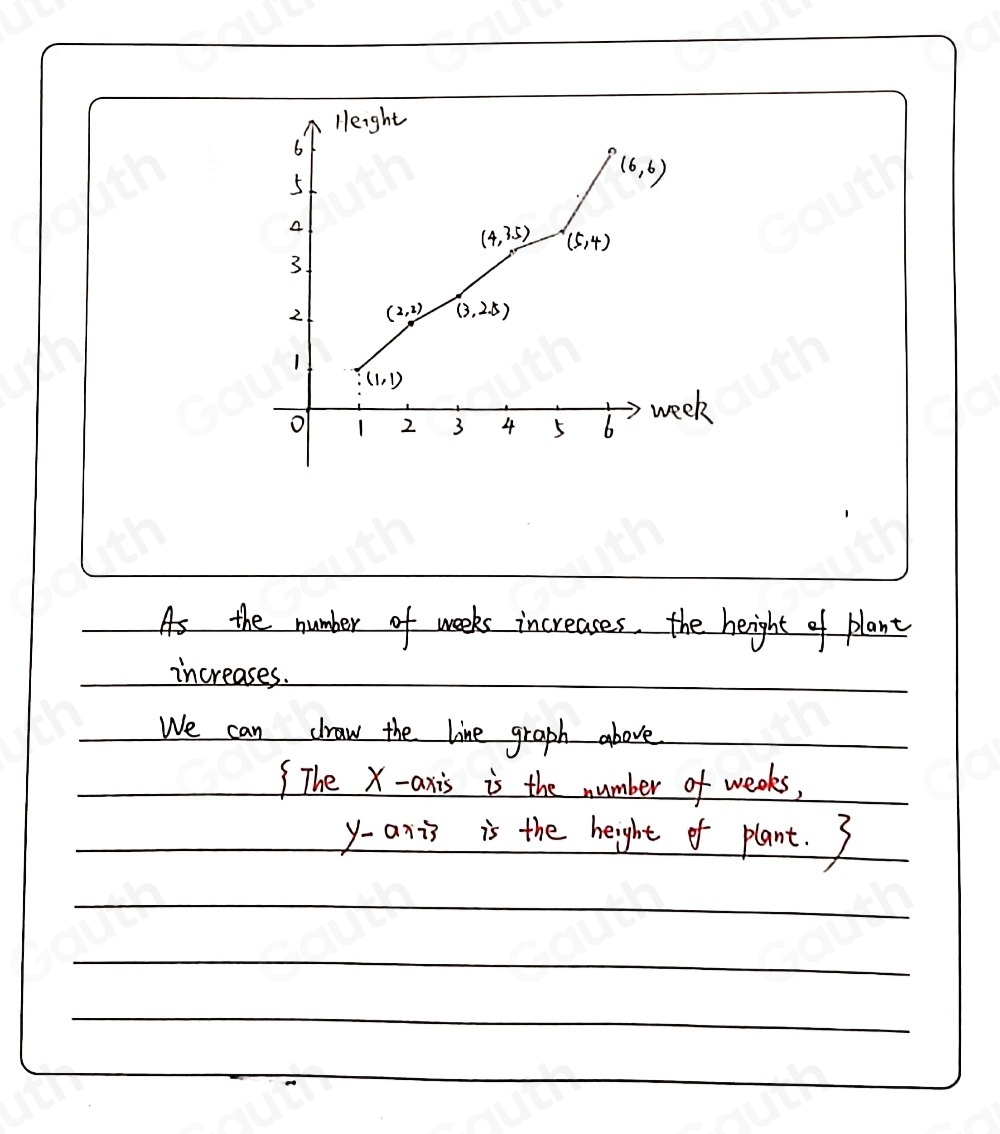 Height
6
(6,6)
5
4
(4,3.5)
(5,4)
3
(2,2)
(3,2.5)
2
1
(1,1)
week
0 1 2 3 4 5 6
As the number of weeks increases. the height of plant
increases.
We can draw the line graph above
{ The X-axis is the number of weeks,
y-axis is the height of plant. }
Gauth